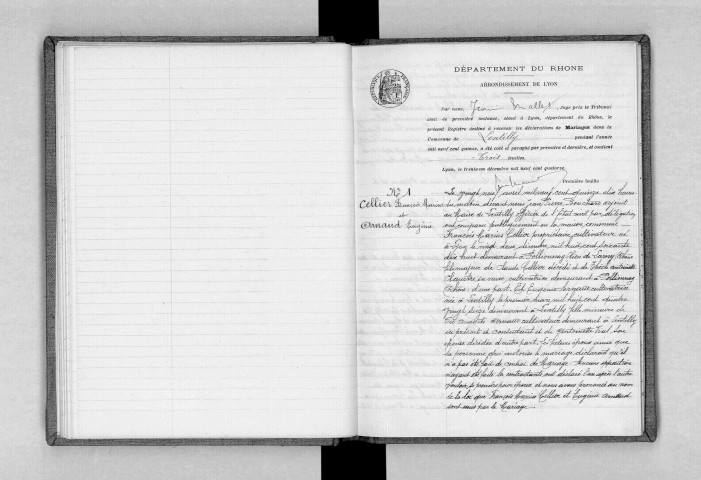 DÉPARTEMENT DU RHONE
ARRONDISSEMENT DE LYON
Par nous, Jean Mallet, Juge près le Tribunal
civil de première instance, séant à Lyon, département du Rhône, le
présent Registre destiné à recevoir les déclarations de Mariages dans la
Commune de Lentilly pendant l'année
mil neuf cent quinze, a été coté et paraphé par première et dernière, et contient
trois feuilles.
Lyon, le trente-un décembre mil neuf cent quatorze.
Première feuille
N° 1
Cellier François Marius
et
Arnaud Eugénie
Le vingt neuf avril mil neuf cent quinze dix heures
du matin devant nous Jean Pierre Bouchard adjoint
au Maire de Lentilly officier de l'état civil par délégation
ont comparu publiquement en la maison commune
François Marius Cellier propriétaire cultivateur né
à le vingt deux décembre mil huit cent soixante
dix huit demeurant à Pollionnay lieu de Larny Rhône
fils majeur de Claude Cellier décédé et de
sa veuve, cultivatrice demeurant à Pollionnay
Rhône, d'une part. Et Eugénie Arnaud cultivatrice
née à Lentilly le premier mars mil huit cent quatre
vingt seize demeurant à Lentilly fille mineure de
Arnaud cultivateur demeurant à Lentilly
ici présent et consentant et de Antoinette son
épouse décédée d'autre part. Les futurs époux ainsi que
la personne qui autorise le mariage déclarent qu'il
n'a pas été fait de contrat de Mariage. Aucune opposition
n'ayant été faite les contractants ont déclaré l'un après l'autre
vouloir se prendre pour époux et nous avons prononcé au nom
de la loi que François Marius Cellier et Eugénie Arnaud
sont unis par le Mariage.